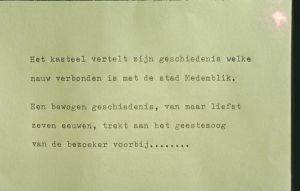 Het kasteel vertelt zijn geschiedenis welke
nauw verbonden is met de stad Medemblik.
Een bewogen geschiedenis, van maar liefst
zeven eeuwen, trekt aan het geestesoog
van de bezoeker voorbij........